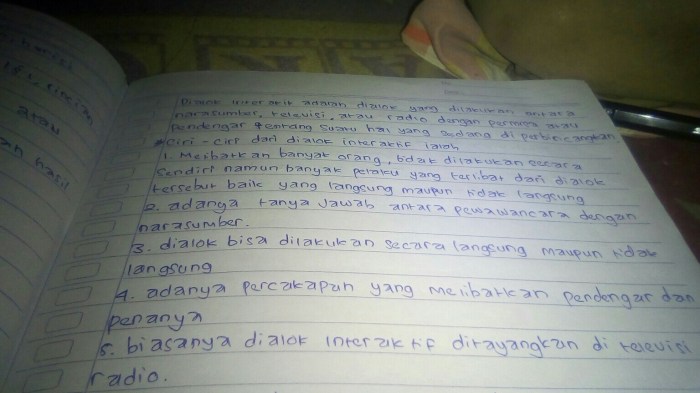 Dialok interaktif adalah dialok yang dilakukan antara
narasumber, televisi, atau radio dengan pemirsa atau
pendengar tentang suatu hal yang sedang di perbincangkan.
*Ciri-ciri dari dialok interaktif ialah
1. Melibatkan banyak orang, tidak dilakukan secara
sendiri namun banyak pelaku yang terlibat dari dialok
tersebut baik yang langsung maupun tidak langsung
2. adanya tanya jawab antara pewawancara dengan
narasumber.
3. dialok bisa dilakukan secara langsung maupun tidak
langsung
4. adanya percakapan yang melibatkan pendengar dan
penanya
5. biasanya dialok interaktif ditayangkan di televisi
radio.
atau
hasil